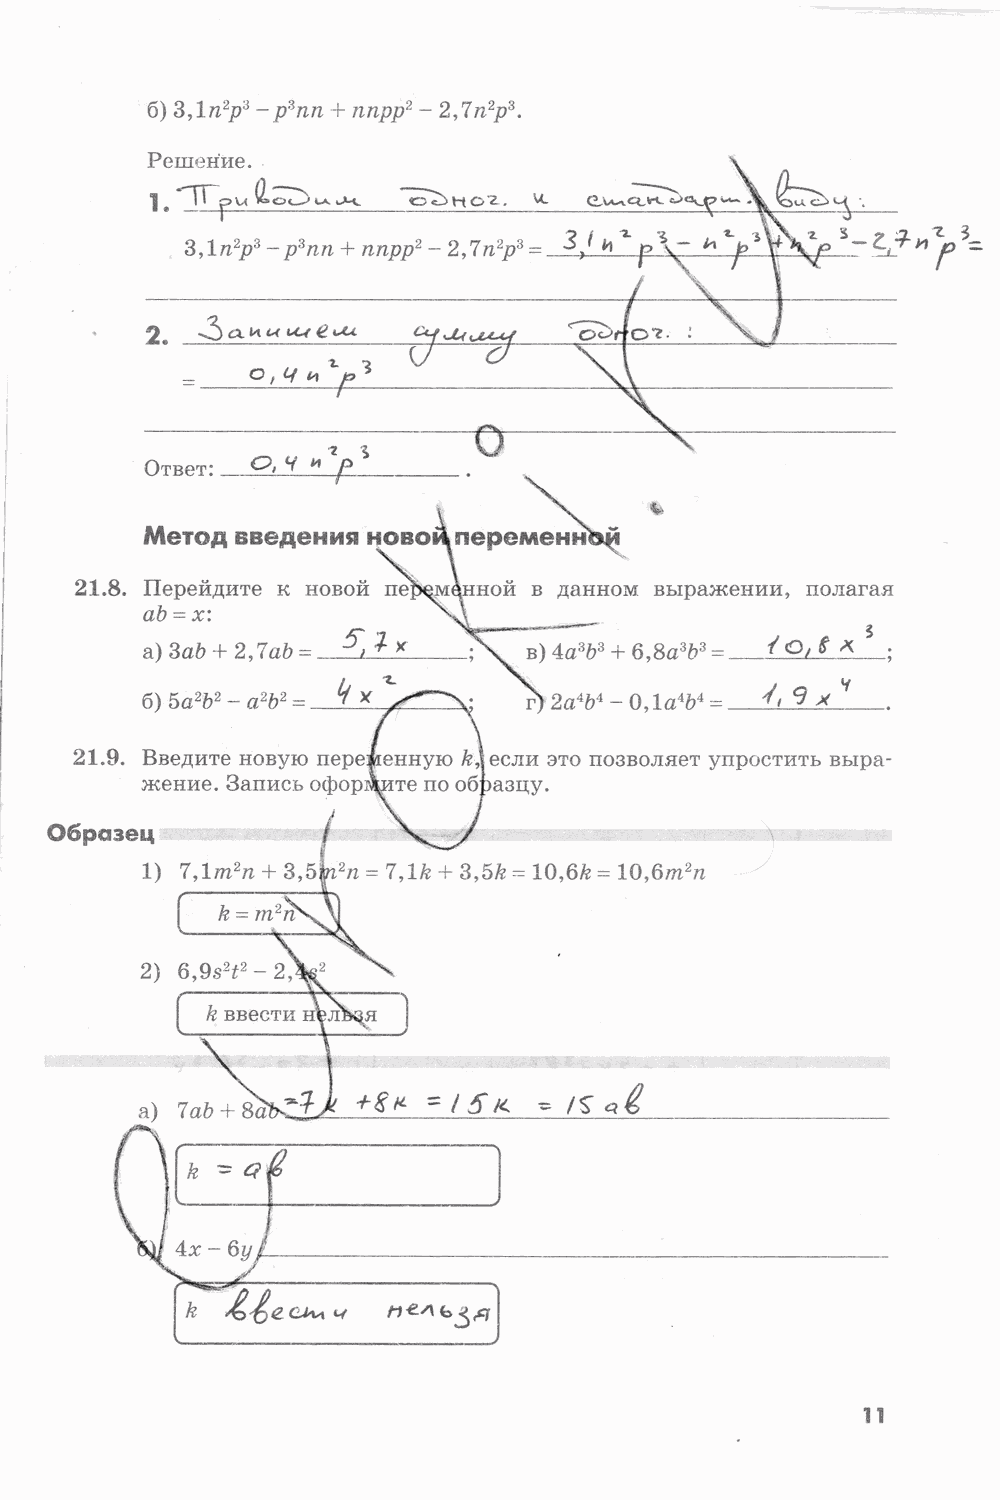 б) 3,1n²p³ – p³nn + nnpp² – 2,7n²p³.
Решение.
1. Приводим одноч. к стандарт. виду:
3,1n²p³ – p³nn + nnpp² – 2,7n²p³ = 3,1n²p³ – n²p³ + n²p³ – 2,7n²p³ =
2. Запишем сумму одноч.:
= 0,4n²p³
Ответ: 0,4n²p³.
Метод введения новой переменной
21.8. Перейдите к новой переменной в данном выражении, полагая
ab = x:
а) 3ab + 2,7ab = 5,7x; в) 4a³b³ + 6,8a³b³ = 10,8x³;
б) 5a²b² – a²b² = 4x²; г) 2a⁴b⁴ – 0,1a⁴b⁴ = 1,9x⁴.
21.9. Введите новую переменную k, если это позволяет упростить выра-
жение. Запись оформите по образцу.
Образец
1) 7,1m²n + 3,5m²n = 7,1k + 3,5k = 10,6k = 10,6m²n
k = m²n
2) 6,9s²t² – 2,4s²
k ввести нельзя
а) 7ab + 8ab = 7k + 8k = 15k = 15ab
k = ab
б) 4x – 6y
k ввести нельзя
11